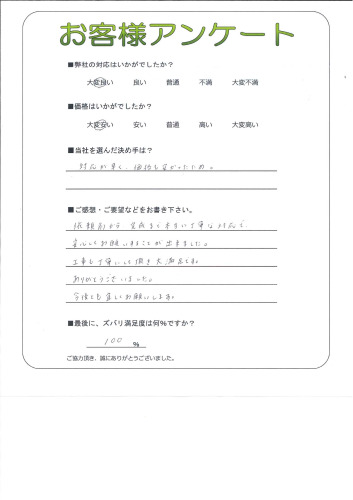 お客様アンケート
■弊社の対応はいかがでしたか？
大変良い 良い 普通 不満 大変不満
■価格はいかがでしたか？
大変安い 安い 普通 高い 大変高い
■当社を選んだ決め手は？
対応が早く、価格も安かったため。
■ご感想・ご要望などをお書き下さい。
依頼前から完成まで本当に丁寧な対応で
安心してお願いすることが出来ました。
工事も丁寧にして頂き大満足です。
ありがとうございました。
今後とも宜しくお願いします。
■最後に、ズバリ満足度は何%ですか？
100 %
ご協力頂き、誠にありがとうございました。